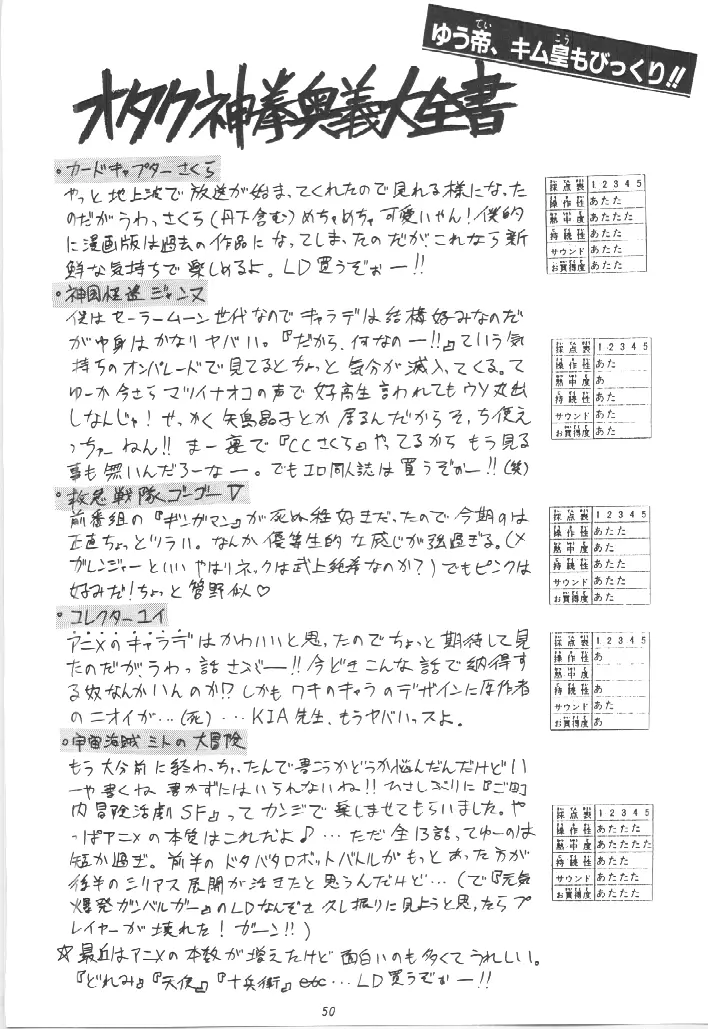 ゆう帝、キム皇もびっくり!!
てい
こう
オタク神拳奥義大全書
・カードキャプターさくら
やっと地上波で放送が始まってくれたので見れる様になった
のだがうわっさくら(丹下含む)めちゃめちゃ可愛いやん!僕的
に漫画版は過去の作品になってしまったのだが、これなら新
鮮な気持ちで楽しめるよ。LD買うぞぉー!!
採点表 1 2 3 4 5
操作性 あたた
熱中度 あたたた
持続性 あたた
サウンド あたた
お買得度 あたた
・神風怪盗ジャンヌ
僕はセーラームーン世代なのでキャラデは結構好みなのだ
が中身はかなりヤバい。『だから、何なのー!!』ていう気
持ちのオンパレードで見てるとちょっと気分が滅入ってくる。て
ゆーか今さらマツイナオコの声で女子高生言われてもウソ丸出
しなんじゃ!せっかく矢島晶子とか居るんだからそっち使え
っちゃーねん!!まー裏で『CCさくら』やってるからもう見る
事も無いんだろーなー。でもエロ同人誌は買うぞぉー!!(笑)
採点表 1 2 3 4 5
操作性 あた
熱中度 あ
持続性 あた
サウンド あた
お買得度 あた
・救急戦隊ゴーゴーV
前番組の『ギンガマン』が死ぬ程好きだったので今期のは
正直ちょっとツラい。なんか優等生的な感じが強過ぎる。(メ
ガレンジャーといいやはりネックは武上純希なのか?)でもピンクは
好みだ!ちょっと菅野似♡
採点表 1 2 3 4 5
操作性 あたた
熱中度 あた
持続性 あたた
サウンド あた
お買得度 あた
・コレクターユイ
アニメのキャラデはかわいいと思ったのでちょっと期待して見
たのだが、うわっ話さぶー!!今どきこんな話で納得す
る奴なんかいんのか!?しかもワキのキャラのデザインに原作者
のニオイが…(死)…KIA先生、もうヤバいっスよ。
採点表 1 2 3 4 5
操作性 あ
熱中度
持続性 あ
サウンド あた
お買得度 あ
・宇宙海賊ミトの大冒険
もう大分前に終わっちゃったんで書こうかどうか悩んだんだけどい
ーや書くね 書かずにはいられないね!!ひさしぶりに『ご町
内冒険活劇SF』ってカンジで楽しませてもらいました。や
っぱアニメの本質はこれだよ♪…ただ全13話ってゆーのは
短か過ぎ。前半のドタバタロボットバトルがもっとあった方が
後半のシリアス展開が活きたと思うんだけど…(で『元気
爆発ガンバルガー』のLDなんぞを久し振りに見ようと思ったらプ
レイヤーが壊れた!ガーン!!)
採点表 1 2 3 4 5
操作性 あたたた
熱中度 あたたたた
持続性 あたた
サウンド あたたた
お買得度 あたたた
☆最近はアニメの本数が増えたけど面白いのも多くてうれしい。
『どれみ』『天使』『十兵衛』etc…LD買うぞぉー!!
50